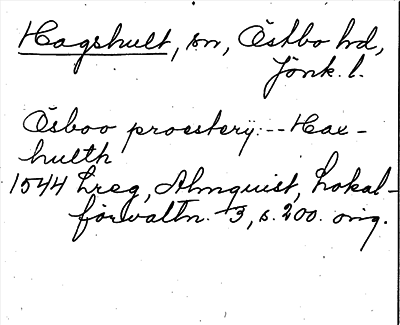 Hagshult, sn, Östbo hd,
Jönk. l.
Ösboo proestery: -- Hax-
hulth
1544 Lreg, Almquist, Lokal-
förvaltn. 3, s. 200. orig.